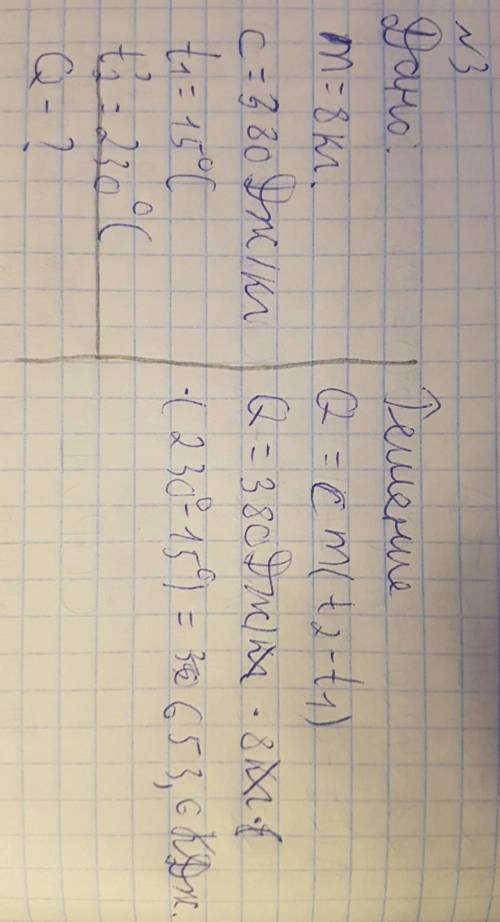 N3
Дано:
m = 8 кг.
c = 380 Дж/кг
t1 = 15°C
t2 = 230°C
Q - ?
Решение
Q = cm(t2 - t1)
Q = 380 Дж/кг · 8 кг ·
· (230° - 15°) = 653,6 кДж.